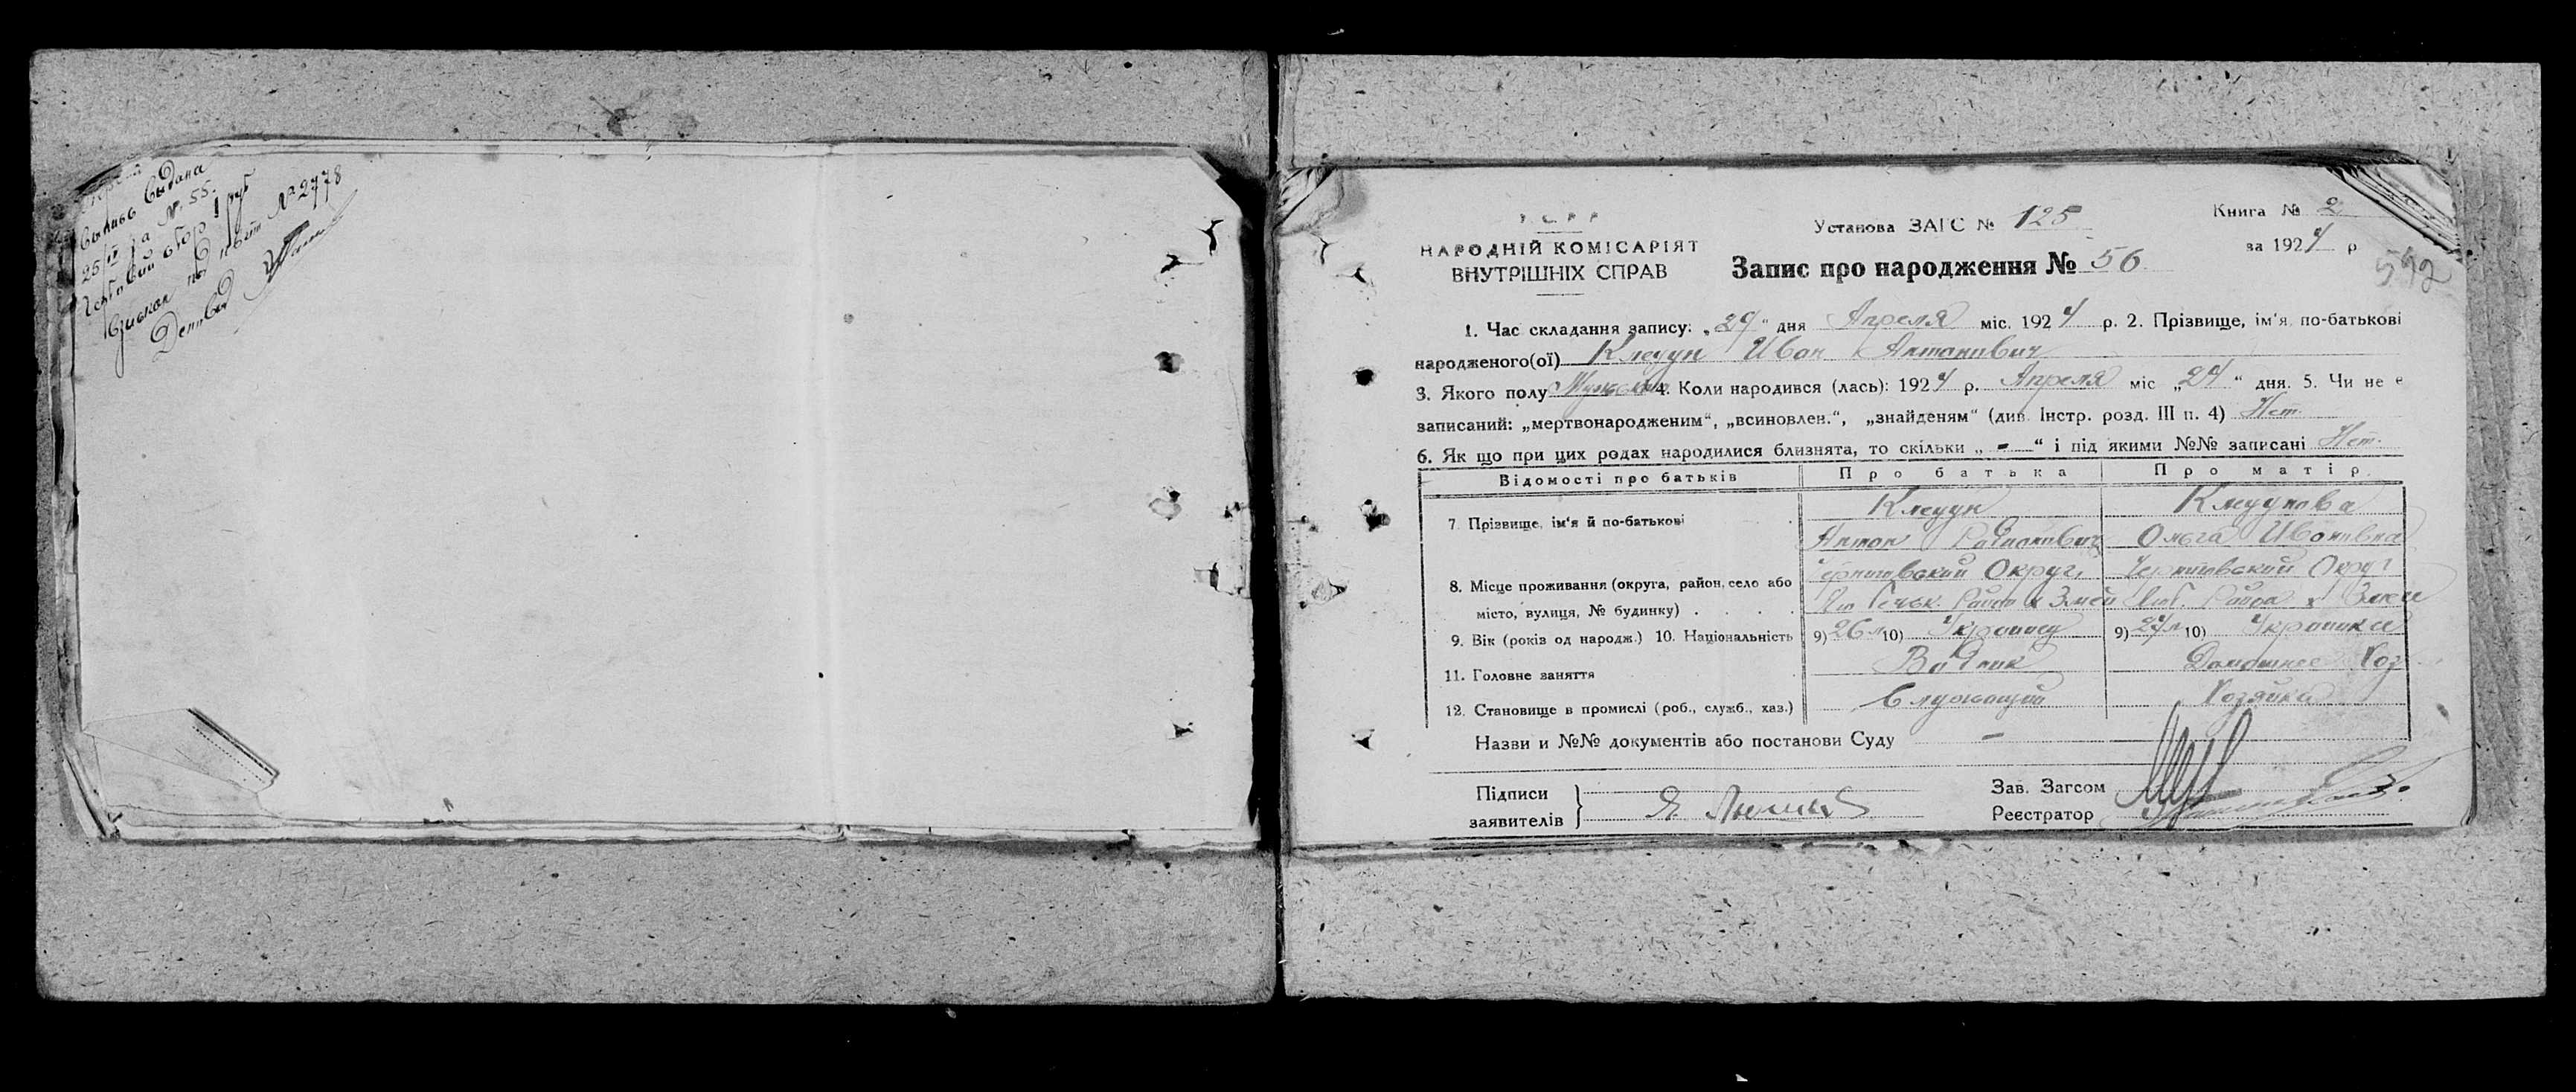 выпись выдана
25/IV за № 55.
Гербовый сбор 1 руб
взыскан по квит № 2778
У С Р Р
НАРОДНІЙ КОМІСАРІЯТ
ВНУТРІШНІХ СПРАВ
Установа ЗАГС № 125
Книга № 2
за 1924 р
Запис про народження № 56
592
1. Час складання запису: „29“ дня Апреля міс. 1924 р. 2. Прізвище, ім'я, по-батькові
народженого(ої) Кледун Иван Антонович
3. Якого полу Мужской 4. Коли народився (лась): 1924 р. Апреля міс „24“ дня. 5. Чи не є
записаний: „мертвонародженим“, „всиновлен.“, „знайденям“ (див. Інстр. розд. III п. 4) Нет
6. Як що при цих родах народилися близнята, то скільки „ - “ і під якими №№ записані Нет.
Відомості про батьків Про батька Про матір
7. Прізвище, ім'я й по-батькові
Кледун Кледунова
Антон Ольга Ивановна
8. Місце проживання (округа, район, село або
місто, вулиця, № будинку)
Черниговский Округ, Черниговский Округ
Любечск. Района х Змеи Люб. Района х Змеи
9. Вік (років од народж.) 10. Національність 9) 26 л 10) Украинец 9) 24 л 10) Украинка
11. Головне заняття Домашнее Хоз
12. Становище в промислі (роб., служб., хаз.) Служащий Хозяйка
Назви и №№ документів або постанови Суду -
Підписи
заявителів
Зав. Загсом
Реєстратор